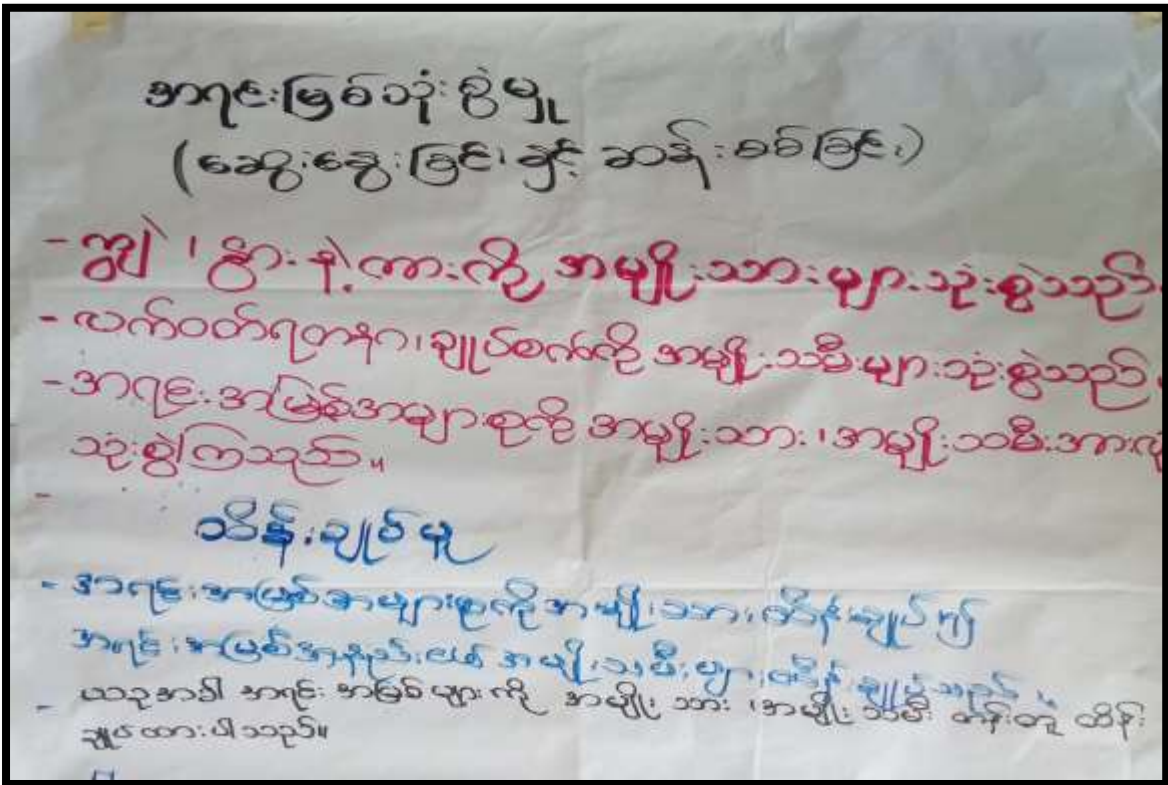 အရင်းမြစ်သုံးစွဲမှု
(ဆွေးနွေးခြင်း နှင့် ဆန်းစစ်ခြင်း)
- ကျွဲ ၊ နွား နဲ့ ကားကို အမျိုးသားများသုံးစွဲသည်။
- လက်ဝတ်ရတနာ၊ ချုပ်စက်ကို အမျိုးသမီးများသုံးစွဲသည်။
- အရင်းအမြစ်အများစုကို အမျိုးသား ၊ အမျိုးသမီးအားလုံ
သုံးစွဲကြသည်။
-
ထိန်းချုပ်မှု
- အရင်းအမြစ်အများစုကို အမျိုးသား ထိန်းချုပ်၍
အရင်းအမြစ်အနည်းငယ် အမျိုးသမီးများ ထိန်းချုပ်သည်။
- ယခုအခါ အရင်းအမြစ်များကို အမျိုးသား ၊ အမျိုးသမီး တန်းတူ ထိန်း
ချုပ်ထားပါသည်။